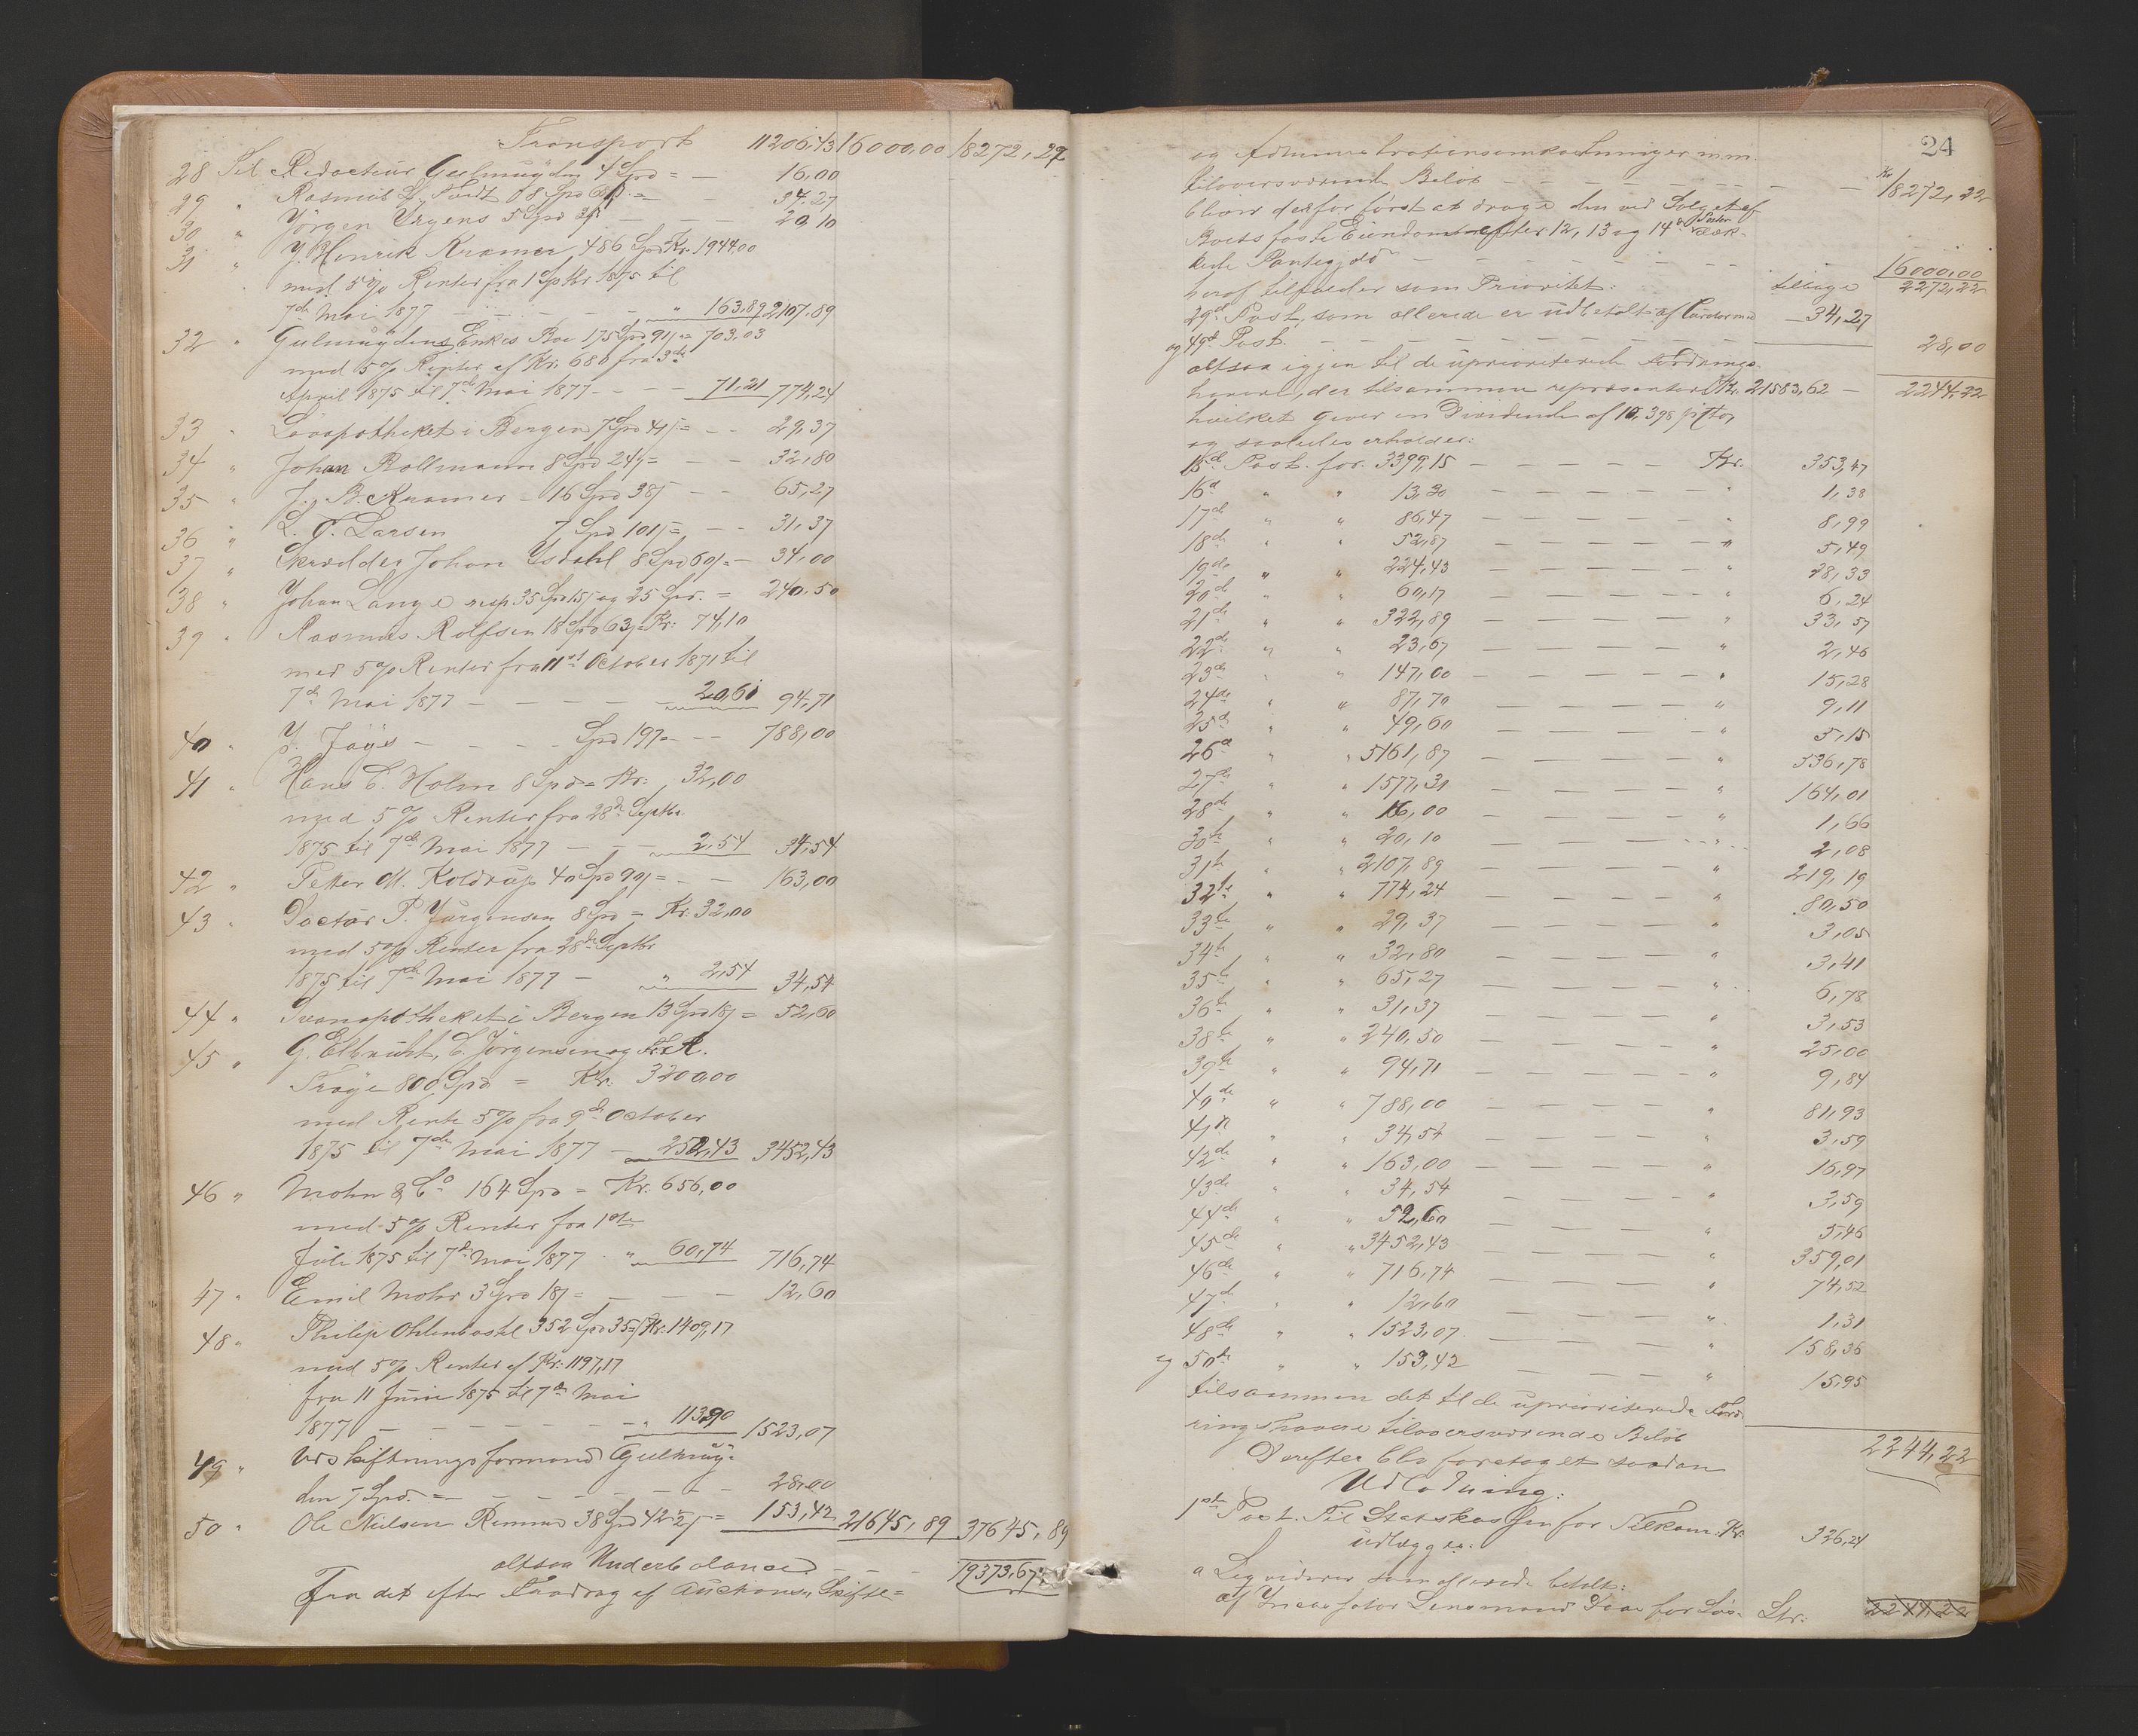 Transport 11206,43 16000,00 18272,22
28 Til Redacteur Gulmüyden 4 Spd = — 16,00
29 " Rasmus L. Tvedt 08 Spd 68/ = — 34,27
30 " Jörgen Irgens 5 Spd 3/ — — — 20,10
31 " J. Henrik Kramer 486 Spd Kr. 1944,00
med 5 % Renter fra 1 Septbr 1875 til
7de Mai 1877 — — — — " 163,89 2107,89
32 " Gulmüydens Enkes Boe 175 Spd 91/ = 703,03
med 5 % Renter af Kr. 680 fra 3de
April 1875 til 7de Mai 1877 — — — 71,21 774,24
33 " Löveapotheket i Bergen 7 Spd 41/ = — — 29,37
34 " Johan Bollmann 8 Spd 24/ = — — 32,80
35 " J. B. Kramer — 16 Spd 38/ — — 65,27
36 " L. T. Larsen 7 Spd 101/ = — — 31,37
37 " Skrædder Johan Isdahl 8 Spd 60/ = — 34,00
38 " Johan Lange resp. 35 Spd 15/ og 25 Spd. = 240,50
39 " Rasmus Rolfsen 18 Spd 63/ = Kr: 74,10
med 5 % Renter fra 11te October 1871 til
7de Mai 1877 — — — — — 20,61 94,71
40 " J. Jöys — — — — Spd 197 = — — 788,00
41 " Hans C. Holm 8 Spd = Kr: 32,00
med 5 % Renter fra 28de Septbr
1875 til 7de Mai 1877 — — — 2,54 34,54
42 " Petter M. Koldrup 40 Spd 90/ = — — 163,00
43 " Doctor P. Jürgensen 8 Spd = Kr: 32,00
med 5 % Renter fra 28de Septbr
1875 til 7de Mai 1877 — " 2,54 34,54
44 " Svaneapotheket i Bergen 13 Spd 18/ = 52,60
45 " G. Elbrücht, C. Jörgensen og Fr. A.
Tröye 800 Spd = Kr: 3200,00
med Rente 5 % fra 9de October
1875 til 7de Mai 1877 — 252,43 3452,43
46 " Mohn & Co 164 Spd = Kr: 656,00
med 5 % Renter fra 1ste
Juli 1875 til 7de Mai 1877 " 60,74 716,74
47 " Emil Mohr 3 Spd 18/ = — — — — 12,60
48 " Philip Ohlenbostel 352 Spd 35/ = Kr: 1409,17
med 5 % Renter af Kr: 1197,17
fra 11 Juni 1875 til 7de Mai
1877 — — — — — — " 113,90 1523,07
49 " Udskiftningsformand Gulmüy-
den 7 Spd. = — — — — — — 28,00
50 " Ole Nielsen Remme 38 Spd 42 1/2/ = 153,42 21645,89 37645,89
altsaa Underbalance — — — 19373,67
Fra det efter Fradrag af Auctions-, Skifte-
24
og Administrationsomkostninger m.m.
tiloversværende Beløb — — — — — — — Kr 18272,22
bliver derfor först at drage den ved Salget af
Boets faste Eiendom efter 12, 13 og 14de Poster dæk-
kede Pantegjeld — — — — — — — 16000,00
tilbage 2272,22
heraf tilfalder som Prioritet:
29de Post, som allerede er udbetalt af Curdermed — 34,27
og 49de Post. — — — — — — — — 28,00
altsaa igjen til de uprioriterede Fordrings-
havere, der tilsammen repræsenterer Kr. 21583,62 — 2244,22
hvilket giver en Dividende af 10,398 pCto,
og saaledes erholder:
15de Post. for. 3399,15 — — — — — Kr. 353,47
16de " " 13,30 — — — — — " 1,38
17de " " 86,47 — — — — — " 8,99
18de " " 52,87 — — — — — " 5,49
19de " " 224,43 — — — — — " 23,33
20de " " 60,17 — — — — — " 6,24
21de " " 322,89 — — — — — " 33,57
22de " " 23,67 — — — — — " 2,46
23de " " 147,00 — — — — — " 15,28
24de " " 87,70 — — — — — " 9,11
25de " " 49,60 — — — — — " 5,15
26de " " 5161,87 — — — — — " 536,78
27de " " 1577,31 — — — — — " 164,01
28de " " 16,00 — — — — — " 1,66
30te " " 20,10 — — — — — " 2,08
31te " " 2107,89 — — — — — " 219,19
32te " " 774,24 — — — — — " 80,50
33te " " 29,37 — — — — — " 3,05
34te " " 32,80 — — — — — " 3,41
35te " " 65,27 — — — — — " 6,78
36te " " 31,37 — — — — — " 3,53
38te " " 240,50 — — — — — " 25,00
39te " " 94,71 — — — — — " 9,84
40de " " 788,00 — — — — — " 81,93
41de " " 34,54 — — — — — " 3,59
42de " " 163,00 — — — — — " 16,97
43de " " 34,54 — — — — — " 3,59
44de " " 52,60 — — — — — " 5,46
45de " " 3452,43 — — — — — " 359,01
46de " " 716,74 — — — — — " 74,52
47de " " 12,60 — — — — — " 1,31
48de " " 1523,07 — — — — — " 158,36
og 50de " " 153,42 — — — — — " 15,95
tilsammen det til de uprioriterede Ford-
ringshavere tiloversværende Beløb
2244,22
Derefter blev foretaget saadan
Udlodning:
1ste Post. Til Statskassen for Tilkom. Kr. 326,24
udlægges:
a Leg viderer som allerede betalt:
af Incassator Lensmand Daae for Løs- Ltr: 2244,22